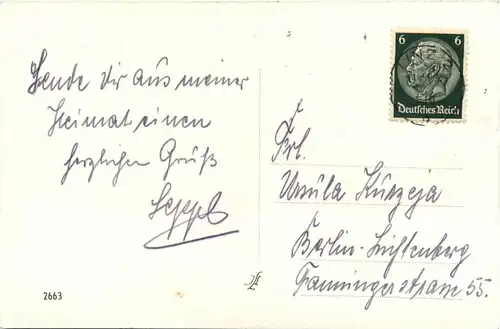 Sende Dir aus meiner
Heimat einen
herzlichen Gruß
Seppl
2663
6 6
Deutsches Reich
Frl.
Ursula Kurzeja
Berlin-Lichtenberg
Fanningerstrasse 55.